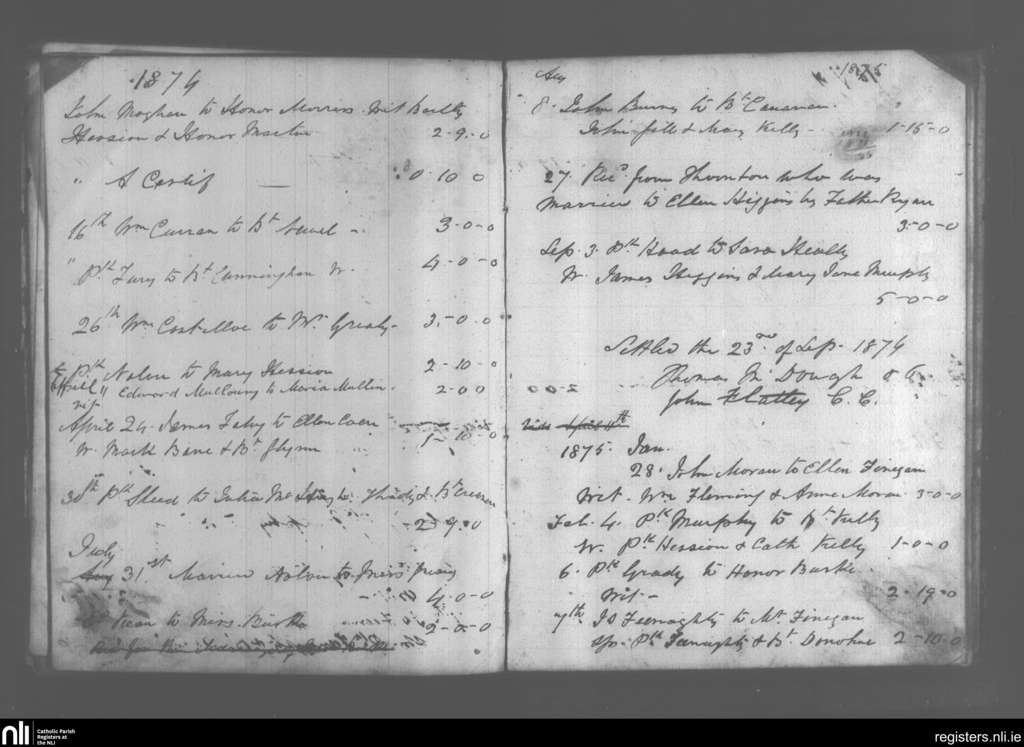 1874
John Moghan to Honor Morris. Wit Bartly
Hession & Honor Martin 2-9-0
" A Certif 0 10 0
16th Wm Curran to Bt 3-0-0
" Pth Fury to Bt Cunningham W. 4-0-0
26th Wm Costelloe to Wr Grealy- 3-0-0
Pth Nolan to Mary Hession 2-10-0
Aprill " Edward Mulloury to Maria Mullin. 2-0-0
wit
April 24. James Fahy to Ellen Coen 1-10-0
W. Mark Bane & Bt Glynn
30th Pth Sleed to Julia Mc Hugh & Bt
2-9-0
July
31st Married Nolan to Miss
4-0-0
Kean to Miss Burke 2-0-0
Aug 1875
8. John Burns to Bt Canavan.
John Gill & Mary Kelly - 1-15-0
27. Recd from Thornton who was
married to Ellen Higgins by Father Ryan
3-0-0
Sep. 3. Pth Hood to Sara Healy
W. James Higgins & Mary Jane Murphy
5-0-0
Settled the 23rd of Sep. 1874
Thomas Mc Dough
John Flatley C.C.
April 4th
1875. Jan.
28. John Moran to Ellen Finegan
Wit. Wm Fleming & Anne Moran 3-0-0
Feb. 4. Ptk Murphy to Bt Kelly
W. Ptk Hession & Cath Kelly 1-0-0
6. Ptk Grady to Honor Burke
Wit - 2-19-0
7th. Js Feenaghty to Mt Finegan
Sps. Ptk Feenaghty & Bt. Donohue 2-10-0
nli
Catholic Parish
Registers at
the NLI
registers.nli.ie